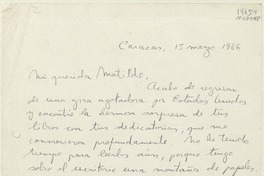 Caracas, 15 marzo 1986
Mi querida Matilde,
Acabo de regresar
de una gira agotadora por Estados Unidos
y encontré la hermosa sorpresa de tus
libros con tus dedicatorias, que me
conmovieron profundamente. No he tenido
tiempo para leerlos aún, porque tengo
sobre el escritorio una montaña de papeles,